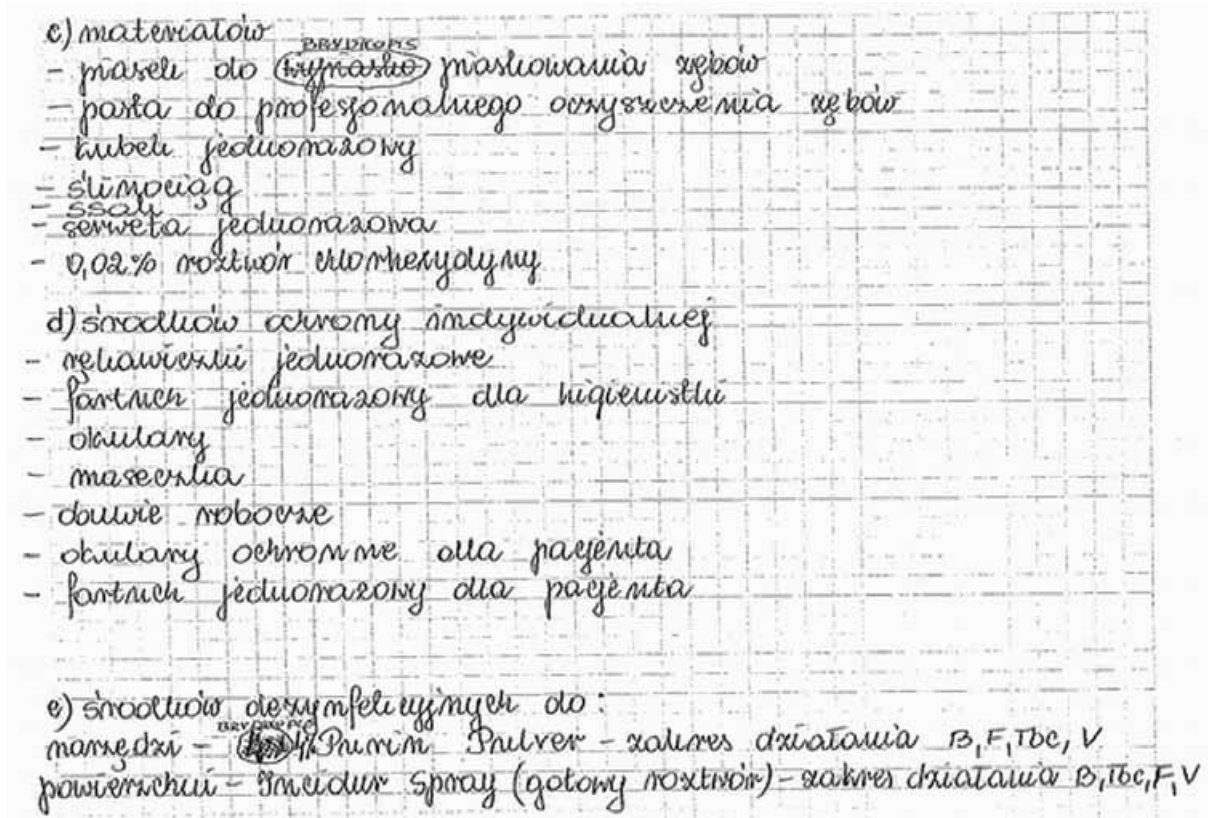 c) materiałów
BRUDNOPIS
- piasek do (wypiasko) piaskowania zębów
- pasta do profesjonalnego oczyszczenia zębów
- kubek jednorazowy
- ślinociąg
- ssak
- serweta jednorazowa
- 0,02% roztwór chlorheksydyny
d) środków ochrony indywidualnej
- rękawiczki jednorazowe
- fartuch jednorazowy dla higienistki
- okulary
- maseczka
- obuwie robocze
- okulary ochronne dla pacjenta
- fartuch jednorazowy dla pacjenta
e) środków dezynfekcyjnych do:
BRUDNOPIS
narzędzi - Purin Pulver - zakres działania B, F, Tbc, V
powierzchni - Incidur Spray (gotowy roztwór) - zakres działania B, Tbc, F, V